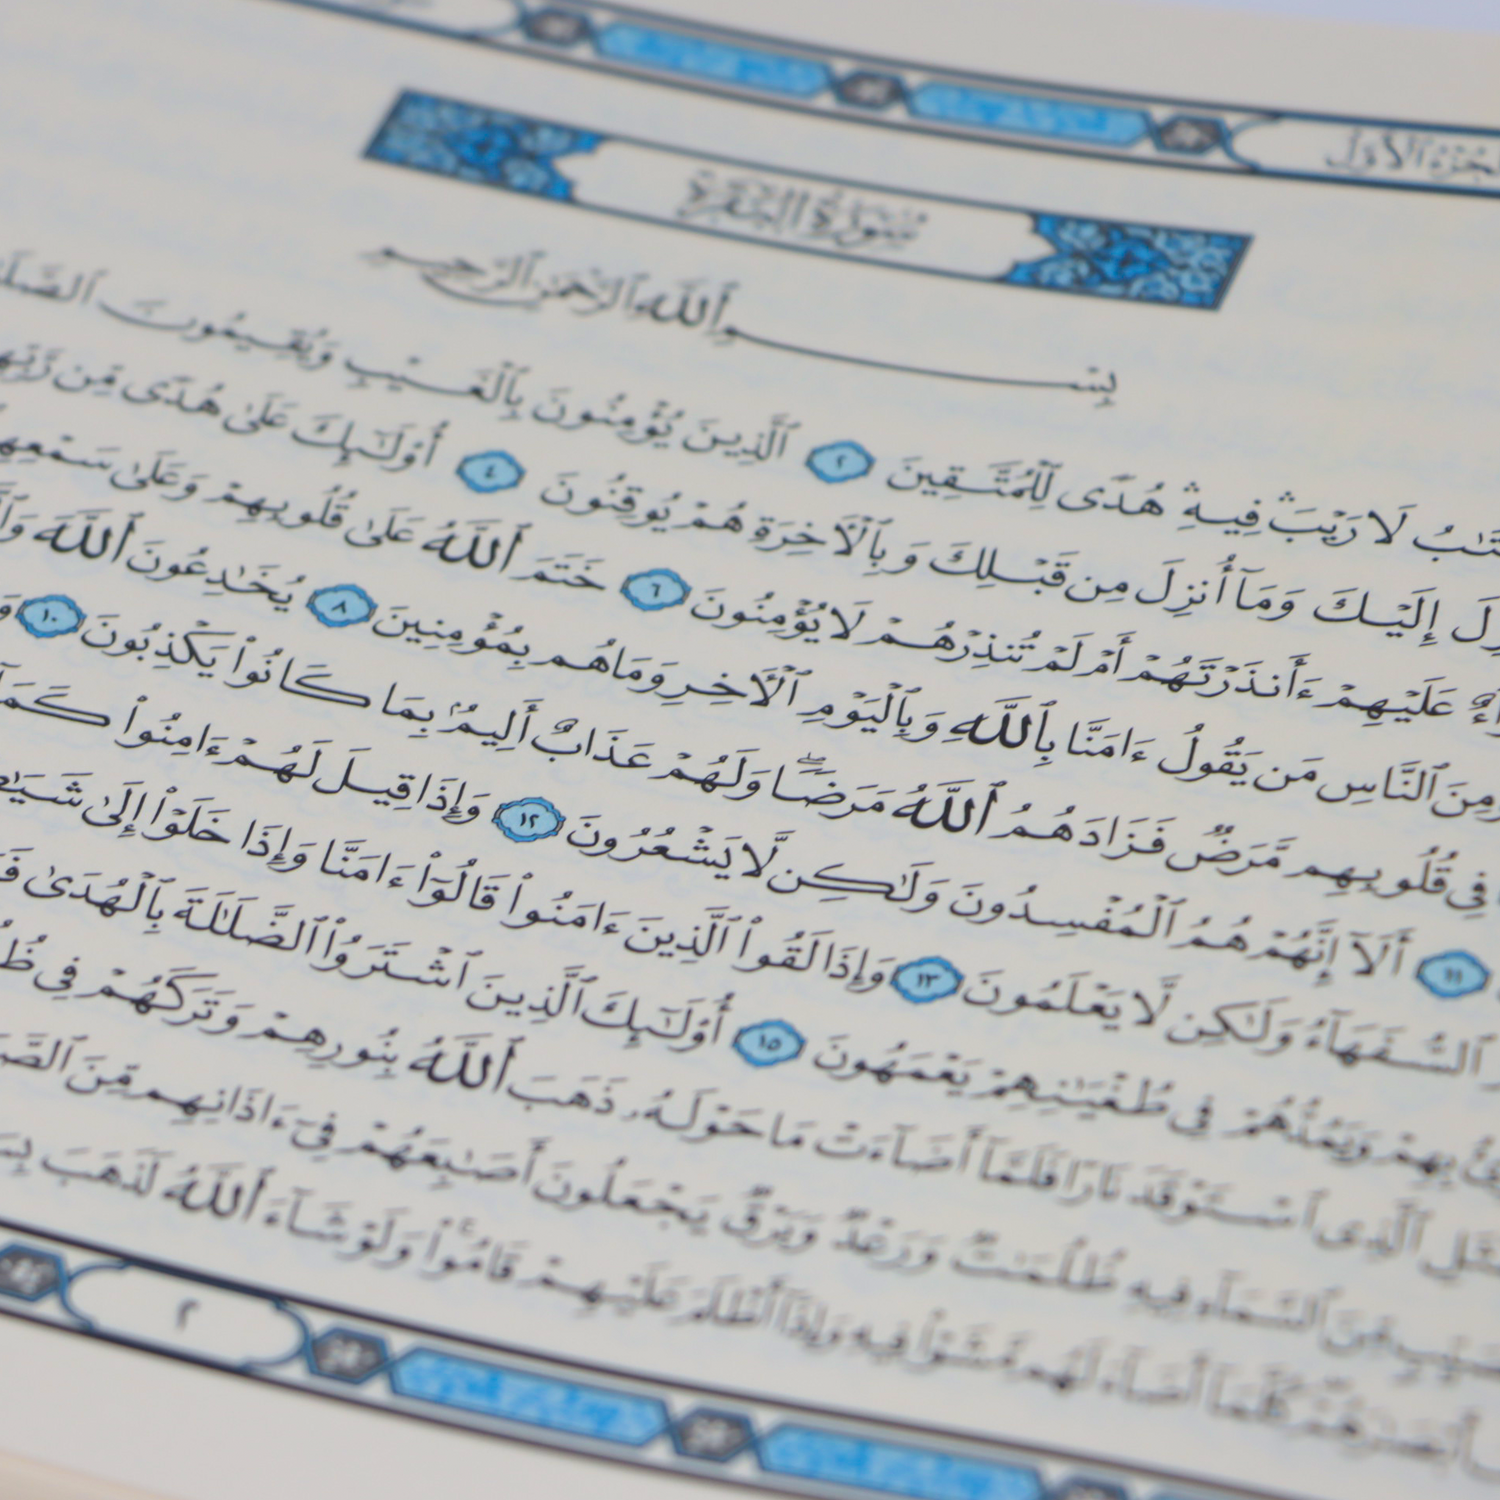 الجزء الأول
سُورَةُ البَقَرَةِ
بِسْمِ ٱللَّهِ ٱلرَّحْمَٰنِ ٱلرَّحِيمِ
لَا رَيْبَ ۛ فِيهِ ۛ هُدًى لِّلْمُتَّقِينَ ٢ ٱلَّذِينَ يُؤْمِنُونَ بِٱلْغَيْبِ وَيُقِيمُونَ
إِلَيْكَ وَمَآ أُنزِلَ مِن قَبْلِكَ وَبِٱلْأَخِرَةِ هُمْ يُوقِنُونَ ٤ أُوْلَٰٓئِكَ عَلَىٰ هُدًى مِّن
عَلَيْهِمْ ءَأَنذَرْتَهُمْ أَمْ لَمْ تُنذِرْهُمْ لَا يُؤْمِنُونَ ٦ خَتَمَ ٱللَّهُ عَلَىٰ قُلُوبِهِمْ وَعَلَىٰ
ٱلنَّاسِ مَن يَقُولُ ءَامَنَّا بِٱللَّهِ وَبِٱلْيَوْمِ ٱلْأَخِرِ وَمَاهُم بِمُؤْمِنِينَ ٨ يُخَٰدِعُونَ ٱللَّهَ
فِى قُلُوبِهِم مَّرَضٌ فَزَادَهُمُ ٱللَّهُ مَرَضًا ۖ وَلَهُمْ عَذَابٌ أَلِيمٌۢ بِمَا كَانُوا۟ يَكْذِبُونَ ١٠
١١ أَلَآ إِنَّهُمْ هُمُ ٱلْمُفْسِدُونَ وَلَٰكِن لَّا يَشْعُرُونَ ١٢ وَإِذَا قِيلَ لَهُمْ ءَامِنُوا۟
ٱلسُّفَهَآءُ وَلَٰكِن لَّا يَعْلَمُونَ ١٣ وَإِذَا لَقُوا۟ ٱلَّذِينَ ءَامَنُوا۟ قَالُوٓا۟ ءَامَنَّا وَإِذَا خَلَوْا۟ إِلَىٰ
بِهِمْ وَيَمُدُّهُمْ فِى طُغْيَٰنِهِمْ يَعْمَهُونَ ١٥ أُوْلَٰٓئِكَ ٱلَّذِينَ ٱشْتَرَوُا۟ ٱلضَّلَٰلَةَ بِٱلْهُدَىٰ
ٱلَّذِى ٱسْتَوْقَدَ نَارًا فَلَمَّآ أَضَآءَتْ مَا حَوْلَهُۥ ذَهَبَ ٱللَّهُ بِنُورِهِمْ وَتَرَكَهُمْ فِى
مِّنَ ٱلسَّمَآءِ فِيهِ ظُلُمَٰتٌ وَرَعْدٌ وَبَرْقٌ يَجْعَلُونَ أَصَٰبِعَهُمْ فِىٓ ءَاذَانِهِم مِّنَ
أَبْصَٰرَهُمْ كُلَّمَآ أَضَآءَ لَهُم مَّشَوْا۟ فِيهِ وَإِذَآ أَظْلَمَ عَلَيْهِمْ قَامُوا۟ ۚ وَلَوْ شَآءَ ٱللَّهُ لَذَهَبَ
٢